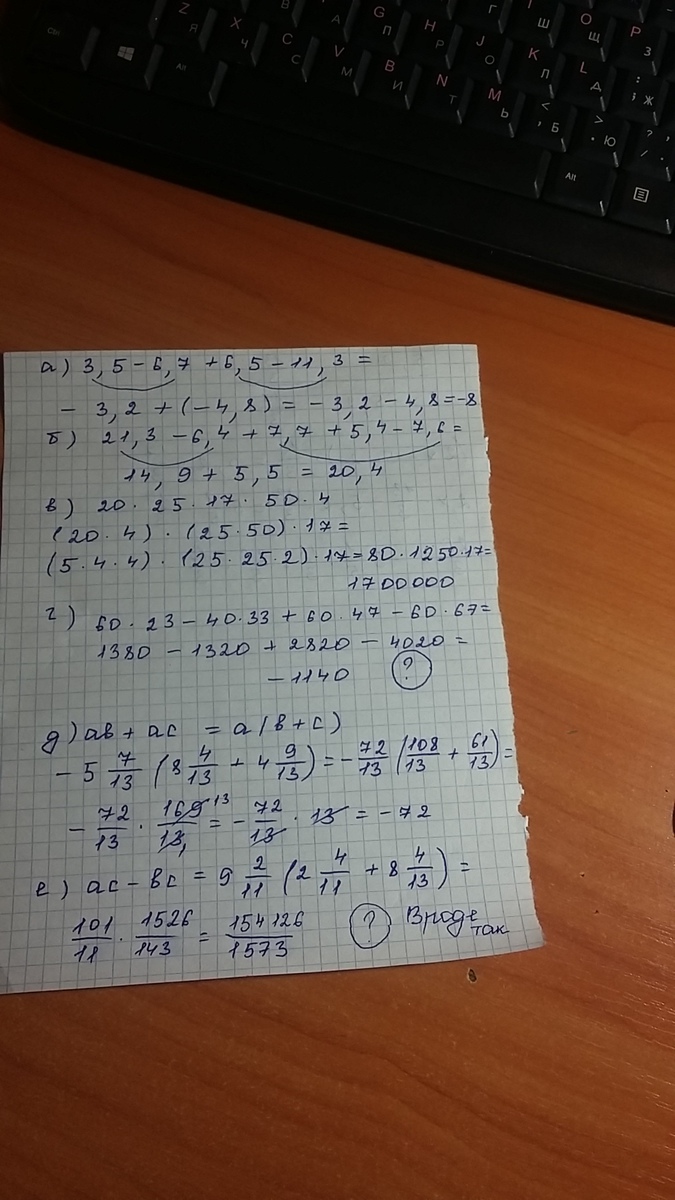 Z Я
X Ч
C С
V М
B И
N Т
M Ь
< , Б
> . Ю
? , / .
G П
H Р
J О
K Л
L Д
: ; Ж
O Щ
P З
Ш
Г
А
В
Ctrl
Alt
Alt
а) 3,5 - 6,7 + 6,5 - 11,3 =
- 3,2 + (-4,8) = - 3,2 - 4,8 = -8
б) 21,3 - 6,4 + 7,7 + 5,4 - 7,6 =
14,9 + 5,5 = 20,4
в) 20 · 25 · 17 · 50 · 4
(20 · 4) · (25 · 50) · 17 =
(5 · 4 · 4) · (25 · 25 · 2) · 17 = 80 · 1250 · 17 =
1700000
г) 60 · 23 - 40 · 33 + 60 · 47 - 60 · 67 =
1380 - 1320 + 2820 - 4020 =
- 1140 ?
д) ав + ас = а(в + с)
- 5 7/13 (8 4/13 + 4 9/13) = - 72/13 (108/13 + 61/13) =
- 72/13 · 169/13 13 1 = - 72/13 · 13 = - 72
е) ас - вс = 9 2/11 (2 4/11 + 8 4/13) =
101/11 · 1526/143 = 154126/1573 ? Вроде
так